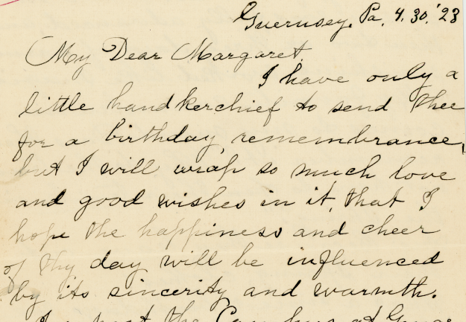 Guernsey, Pa, 4.30.'23
My Dear Margaret,
I have only a
little handkerchief to send thee
for a birthday remembrance,
but I will wrap so much love
and good wishes in it, that I
hope the happiness and cheer
of thy day will be influenced
by its sincerity and warmth.